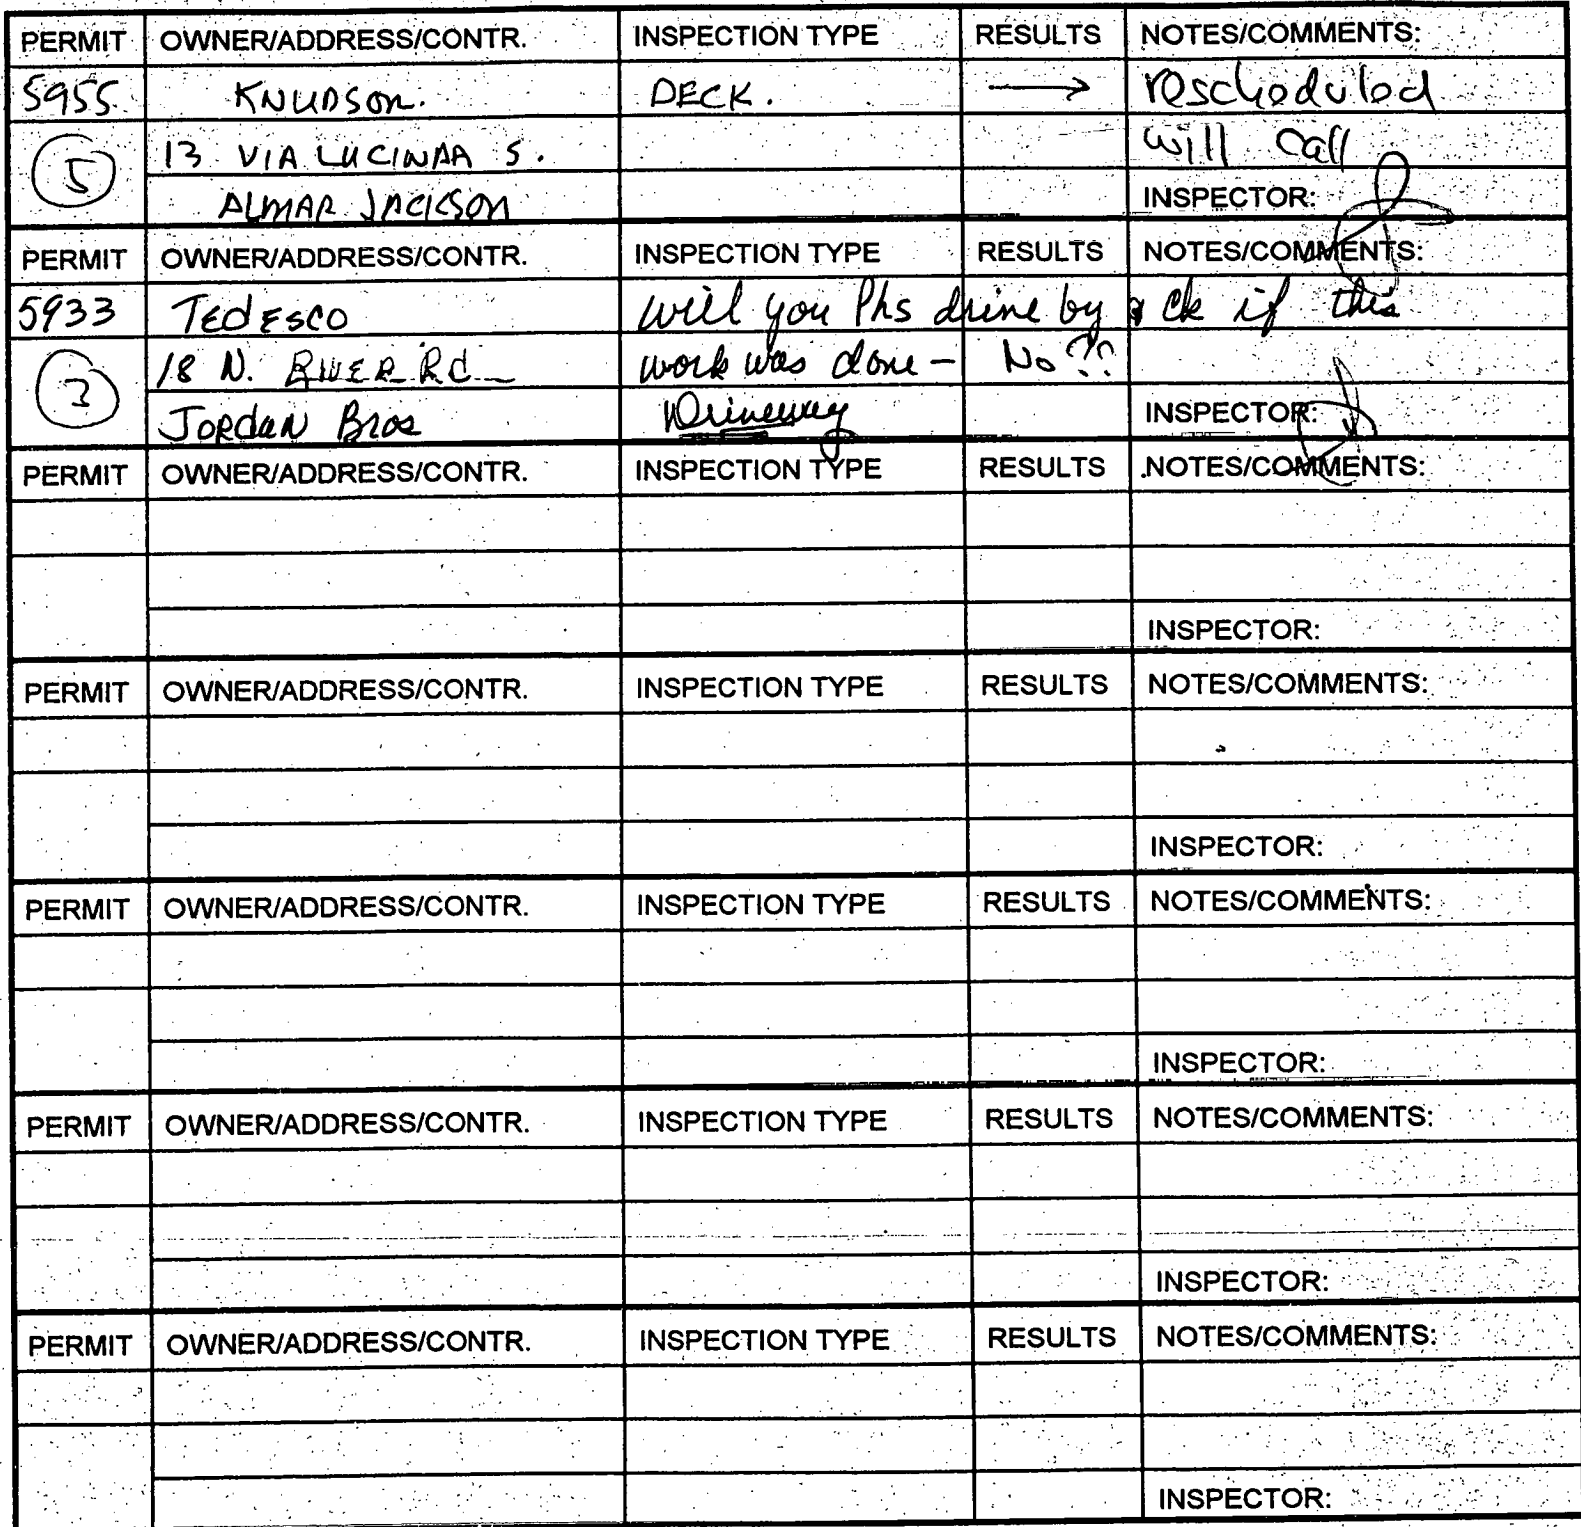 PERMIT OWNER/ADDRESS/CONTR. INSPECTION TYPE RESULTS NOTES/COMMENTS:
5955 KNUDSON. DECK. → rescheduled
5 13 VIA LUCINDA S. will call
ALMAR JACKSON INSPECTOR:
PERMIT OWNER/ADDRESS/CONTR. INSPECTION TYPE RESULTS NOTES/COMMENTS:
5933 TEDESCO will you Pls drive by & ck if this
3 18 N. RIVER Rd work was done - No??
JORDAN Bros Driveway INSPECTOR:
PERMIT OWNER/ADDRESS/CONTR. INSPECTION TYPE RESULTS NOTES/COMMENTS:
INSPECTOR:
PERMIT OWNER/ADDRESS/CONTR. INSPECTION TYPE RESULTS NOTES/COMMENTS:
INSPECTOR:
PERMIT OWNER/ADDRESS/CONTR. INSPECTION TYPE RESULTS NOTES/COMMENTS:
INSPECTOR:
PERMIT OWNER/ADDRESS/CONTR. INSPECTION TYPE RESULTS NOTES/COMMENTS:
INSPECTOR:
PERMIT OWNER/ADDRESS/CONTR. INSPECTION TYPE RESULTS NOTES/COMMENTS:
INSPECTOR: